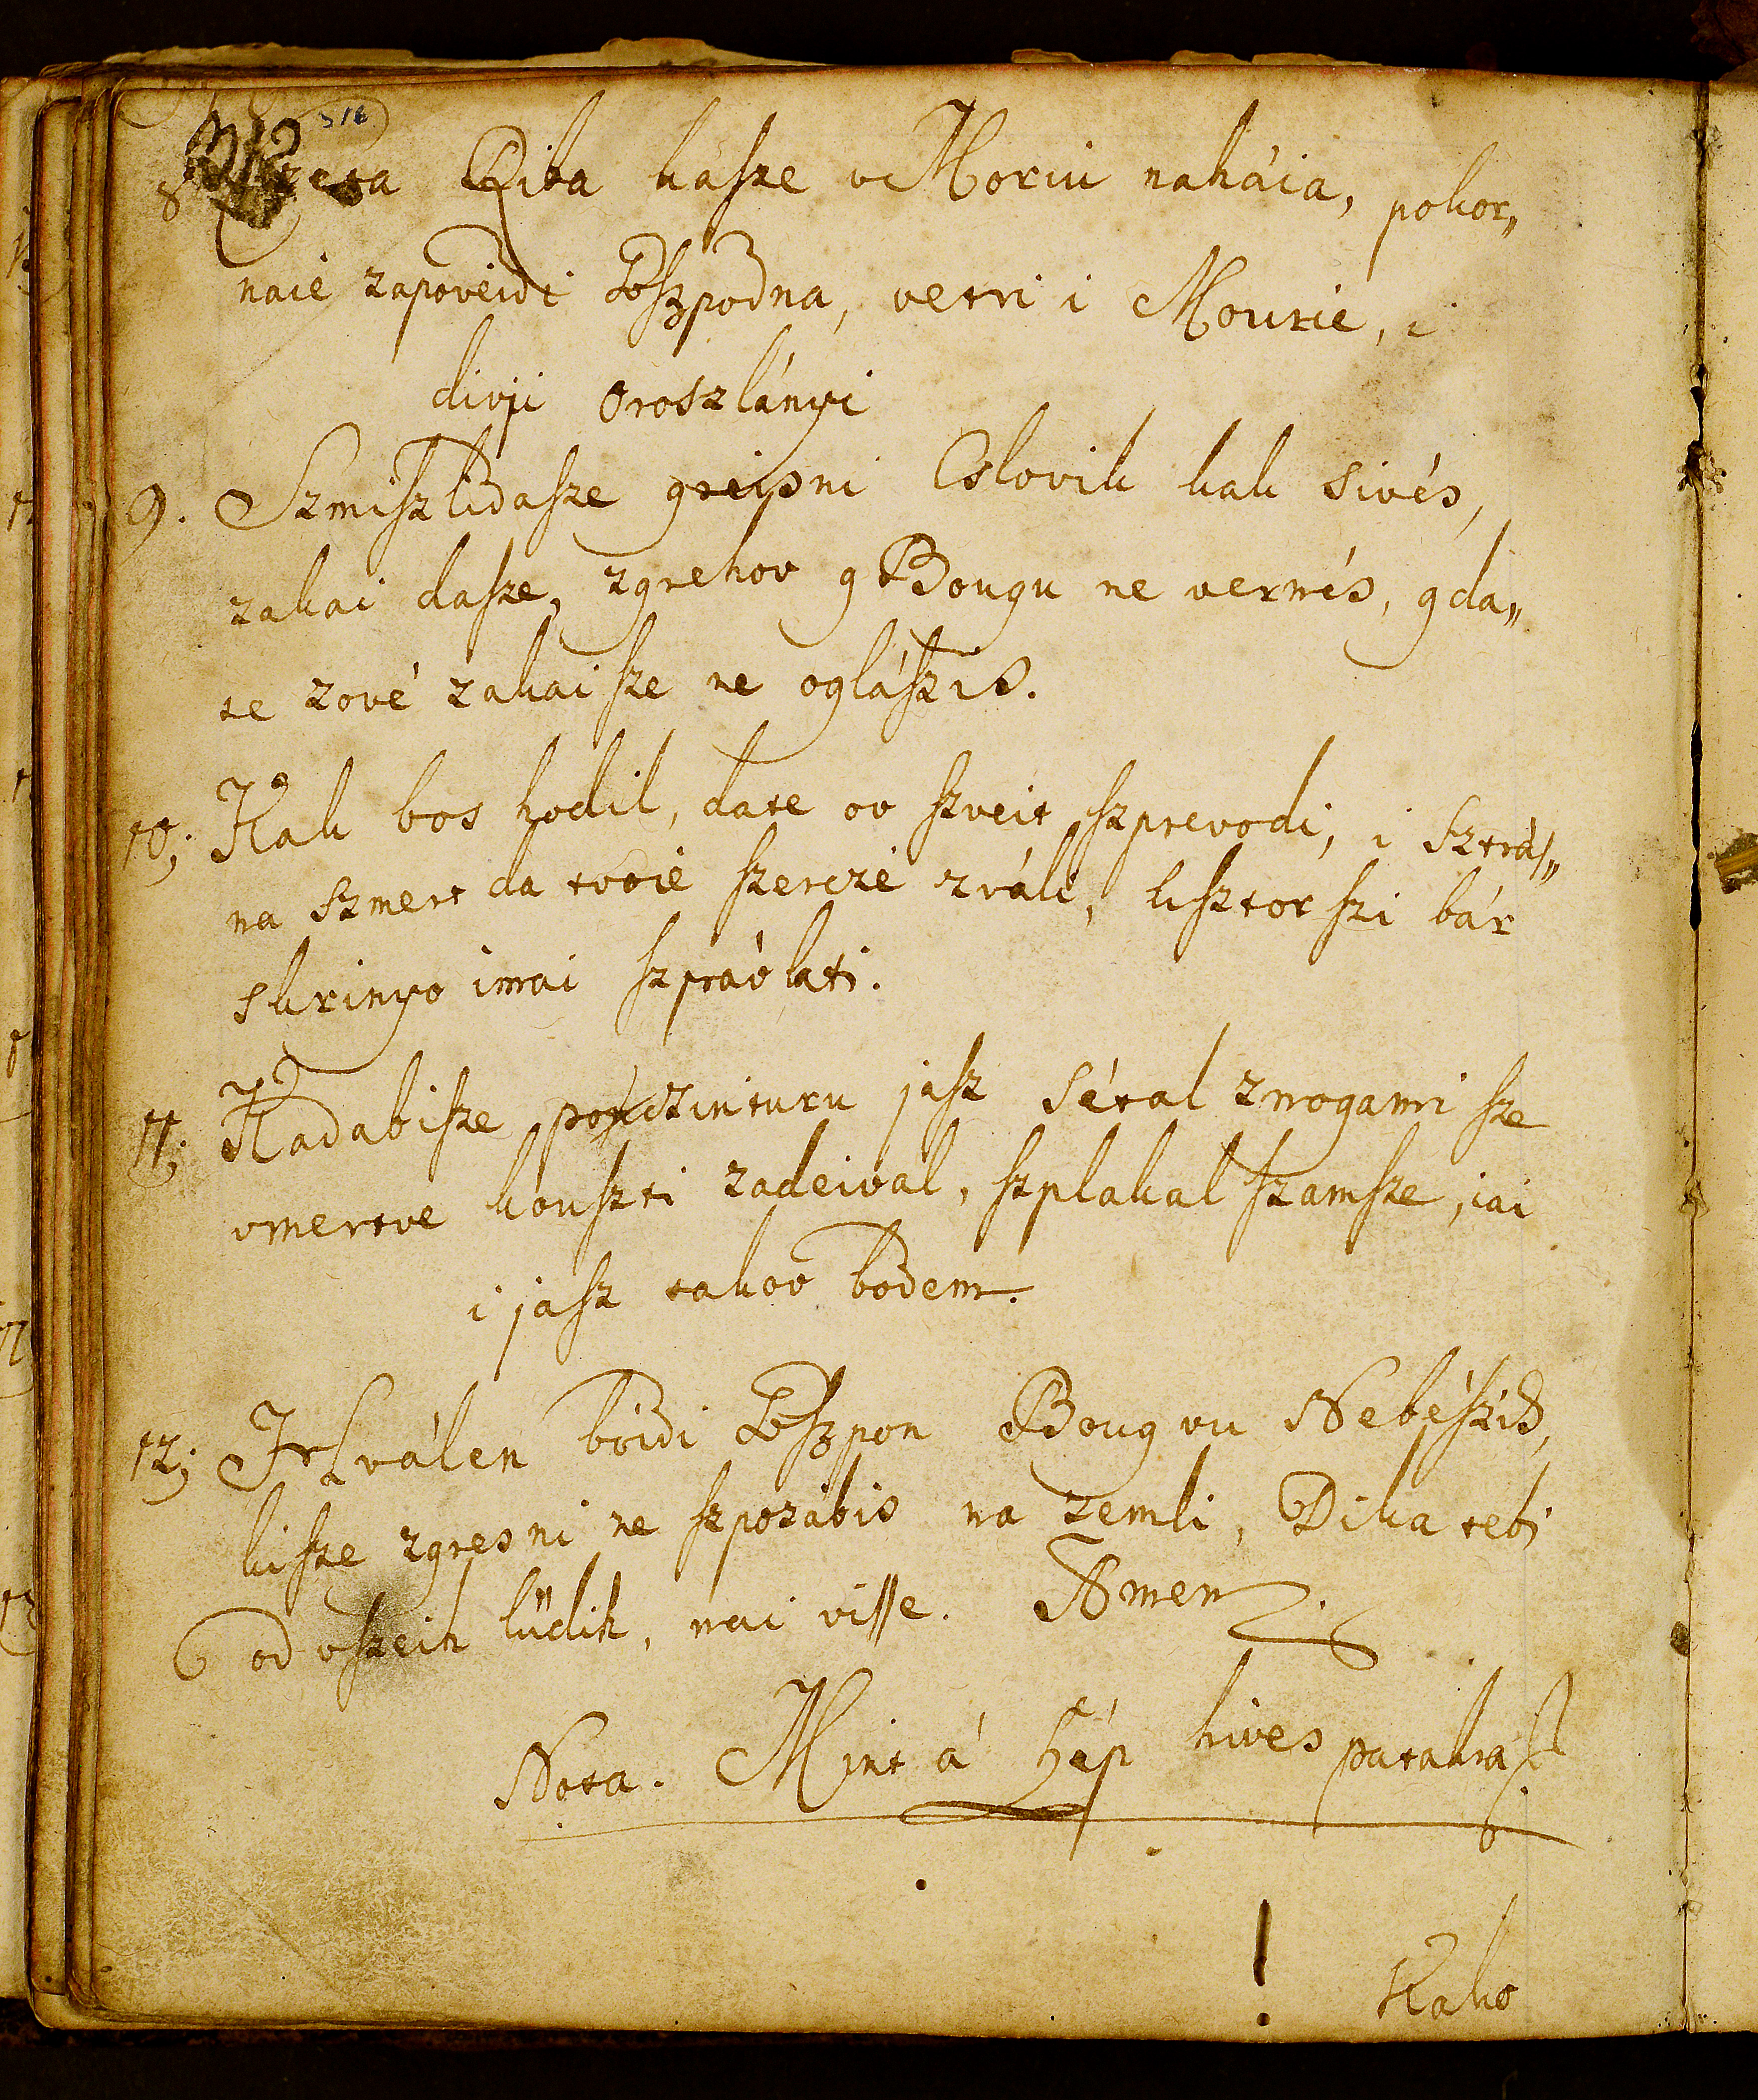 8 Riba kaſze v Moriu nahaia, pokor„
naié zapoveidi Goſzpodna, vetri i Mourie, i
divji oroszlányi
9. Szmiſzlidaſze greisni Cslovik kak sivés,
zakai daſze, zgrehov g Bougu ne vernés, gda„
te zové zakai ſze ne ogláſzis.
10; Kak bos hodil, date ov ſzveit ſzprevodi, i Sztraſ„
na Szmert da tvoié ſzerczé zváli, ksztor ſzi bár
skrinyo imai ſzprávlati.
11; Kadabiſze poczinturu jaſz sétal znogami ſze
vmertve kouſzti zadeival, ſzplakal ſzamſze, iai
i jaſz takov bodem.
12; Hválen boidi Goſzpon Boug vu Nebéſziɧ,
kiſze zgresni ne ſzpozábis na zemli, Dika tebi
od vſzeih lüdih, nai viſſe. Amen.
Nota. Mint á ſzép hives patakraſ
Kako